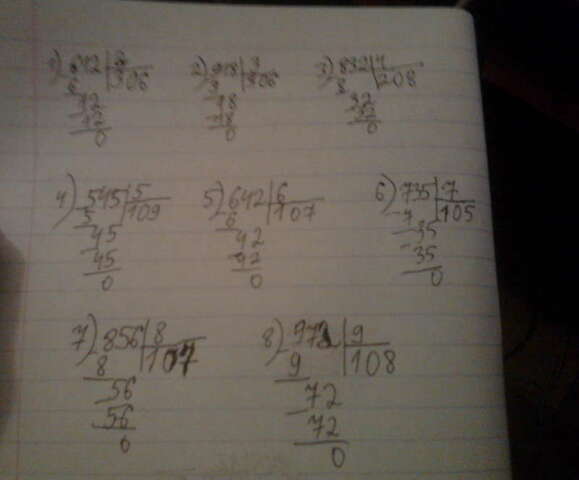 1) 612 | 2 2) 918 | 3 3) 832 | 4
6 306 9 306 8 208
12 18 32
12 18 32
0 0 0
4) 545 | 5 5) 642 | 6 6) 735 | 7
5 109 6 107 7 105
45 42 35
45 42 35
0 0 0
7) 856 | 8 8) 972 | 9
8 107 9 108
56 72
56 72
0 0